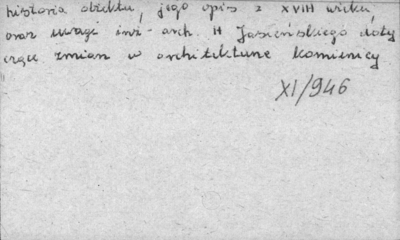 historia obiektu, jego opis z XVIII wieku,
oraz uwagi inż-arch. H Jasieńskiego doty
czące zmian w architekturze kamienicy
XI/946